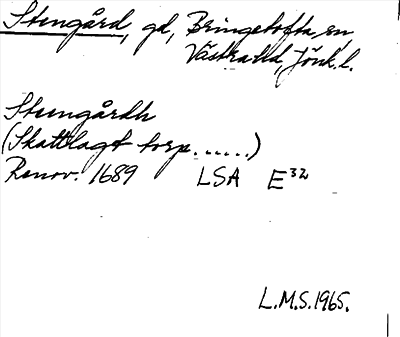 Stengård, gd, Bringetofta sn,
Västra hd, Jönk.l.
Stengårdh
(Skattlagt torp......)
Renov. 1689 LSA E³²
L.M.S.1965.